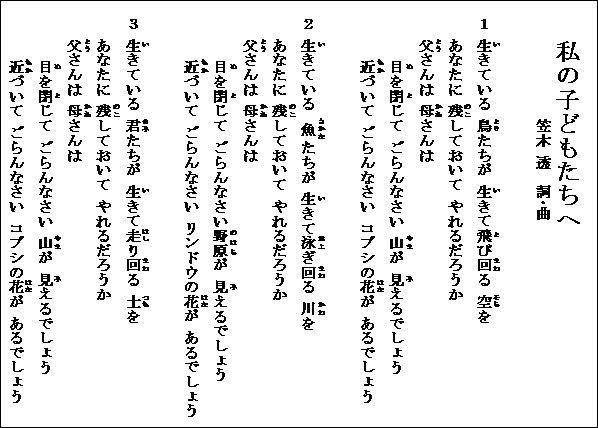 私の子どもたちへ
笠木 透 詞・曲
1 生きている 鳥たちが 生きて飛び回る 空を
あなたに 残しておいて やれるだろうか
父さんは 母さんは
目を閉じて ごらんなさい 山が 見えるでしょう
近づいて ごらんなさい コブシの花が あるでしょう
2 生きている 魚たちが 生きて泳ぎ回る 川を
あなたに 残しておいて やれるだろうか
父さんは 母さんは
目を閉じて ごらんなさい 野原が 見えるでしょう
近づいて ごらんなさい リンドウの花が あるでしょう
3 生きている 君たちが 生きて走り回る 土を
あなたに 残しておいて やれるだろうか
父さんは 母さんは
目を閉じて ごらんなさい 山が 見えるでしょう
近づいて ごらんなさい コブシの花が あるでしょう